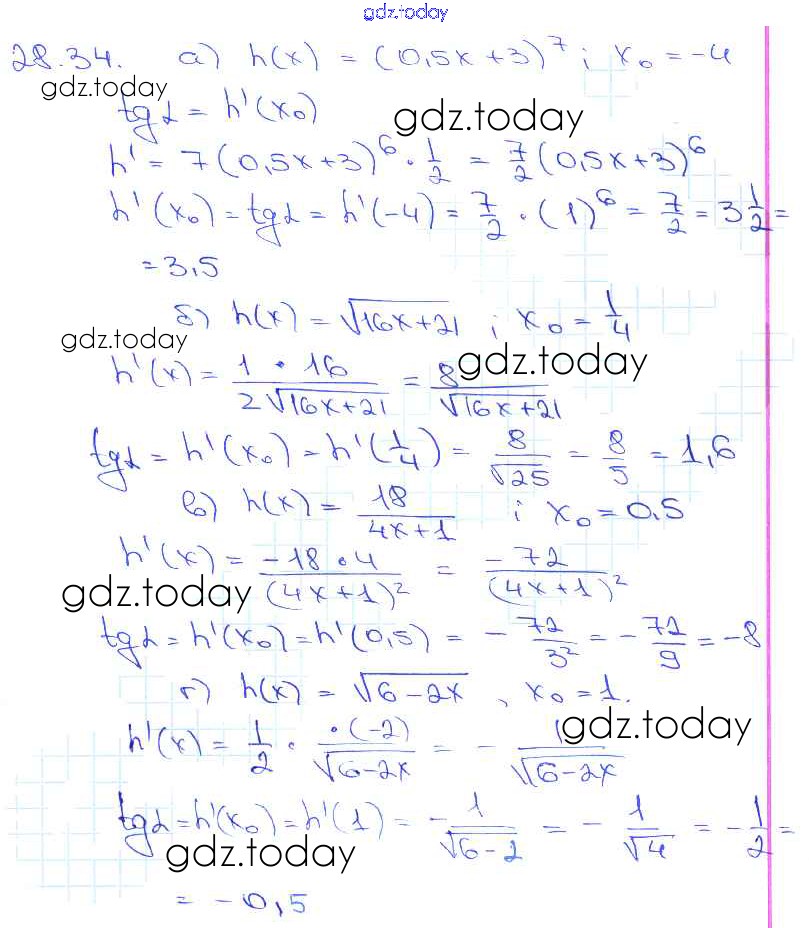 gdz.today
28.34. а) h(x) = (0,5x+3)^7 ; x₀ = -4
gdz.today
tgα = h'(x₀)
gdz.today
h' = 7(0,5x+3)^6 · 1/2 = 7/2 (0,5x+3)^6
h'(x₀) = tgα = h'(-4) = 7/2 · (1)^6 = 7/2 = 3 1/2 =
= 3,5
б) h(x) = √(16x+21) ; x₀ = 1/4
gdz.today
gdz.today
h'(x) = (1 · 16)/(2√(16x+21)) = 8/√(16x+21)
tgα = h'(x₀) = h'(1/4) = 8/√25 = 8/5 = 1,6
в) h(x) = 18/(4x+1) ; x₀ = 0,5
h'(x) = (-18 · 4)/(4x+1)² = -72/(4x+1)²
gdz.today
tgα = h'(x₀) = h'(0,5) = - 72/3² = - 72/9 = -8
г) h(x) = √(6-2x) , x₀ = 1.
gdz.today
h'(x) = 1/2 · (·(-2))/√(6-2x) = - 1/√(6-2x)
tgα = h'(x₀) = h'(1) = - 1/√(6-2) = - 1/√4 = - 1/2 =
gdz.today
= -0,5